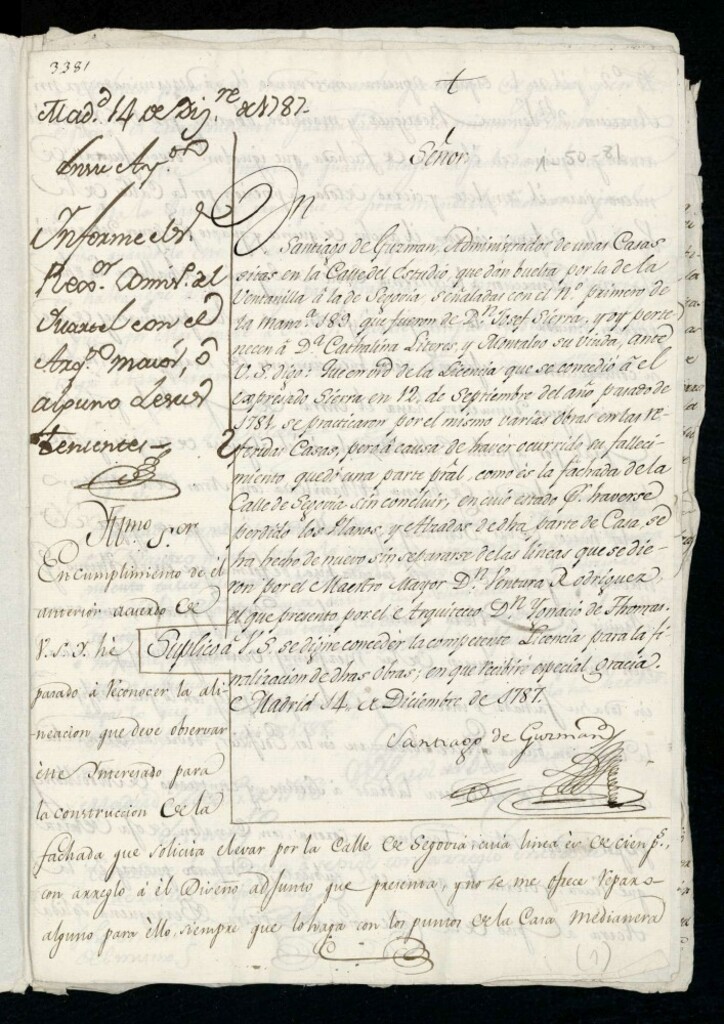 3381
Mad.d 14 de Diz.re de 1787.
En su Ay.to
Informe el S.r
Rex.or Comis.o del
Quartel con el
Arq.to maior, ò
alguno de sus
tenientes
Yllmo S.or
En cumplimiento de el
anterior acuerdo de
V.S.Y. hè
pasado à reconocer la ali-
neacion que deve observar
este Interesado para
la construccion de la
Señor.
Dn
Santiago de Guzman, Administrador de unas Casas
sitas en la Calle del Estudio, que dan buelta por la de la
Ventanilla à la de Segovia, señaladas con el N.º primero de
la Manz.a 189. que fueron de D.n Josef Sierra, y oy perte
necen à D.a Cathalina Literes, y Montalvo su viuda, ante
V.S. digo: Que en vd de la Licencia que se concediò à el
expresado Sierra en 12, de Septiembre del año pasado de
1781, se practicaron por el mismo varias obras en las re
feridas Casas, pero à causa de haver ocurrido su falleci-
miento, quedò una parte pral, como es la fachada de la
Calle de Segovia sin concluir, en cuio estado p.r haverse
perdido los Planos, y Alzados de dha, parte de Casa, se
ha hecho de nuevo sin separarse de las lineas que se die-
ron por el Maestro Mayor D.n Ventura Rodriguez,
el que presento por el Arquitecto D.n Ygnacio de Thomas.
Suplico à V.S. se digne conceder la competente Licencia para la fi-
nalizacion de dhas Obras; en que recibirè especial gracia.
Madrid 14, de Diciembre de 1787.
Santiago de Guzman
fachada que solicita elevar por la Calle de Segovia, cuia linea es de cien p.s,
con arreglo à el Diseño adjunto que presenta, y no se me ofrece reparo
alguno para ello, siempre que lo haga con los puntos de la Casa medianera
(1)